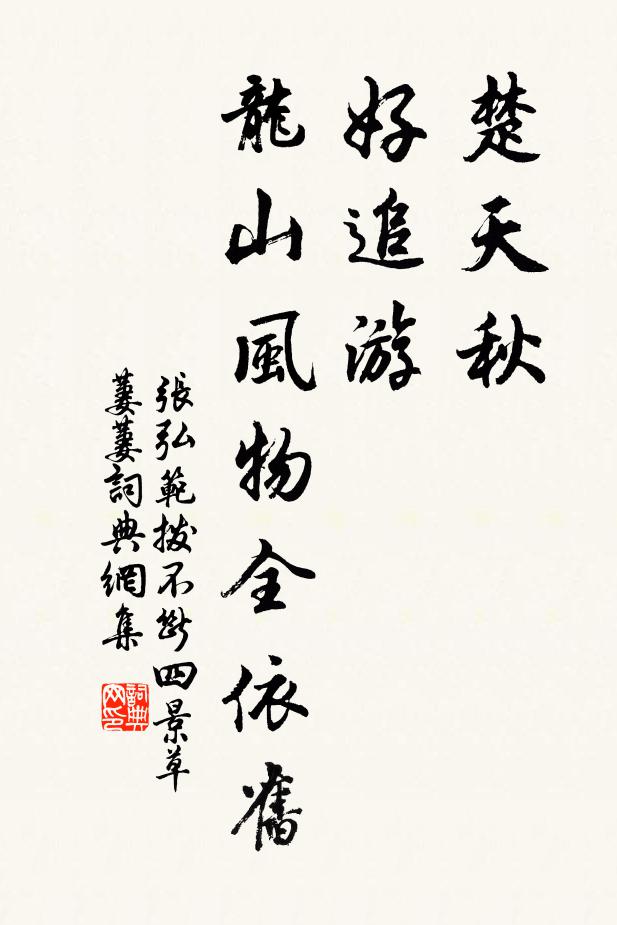 楚天秋
好追游
龍山風物全依舊
張弘範撥不斷四景草
萋萋詞典網集
詞典网印